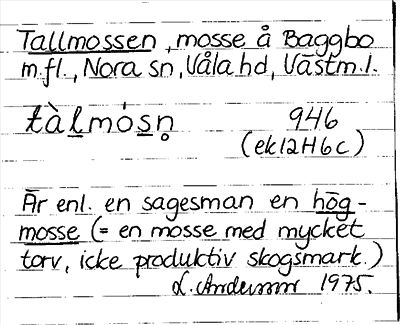 Tallmossen, mosse å Baggbo
m.fl., Nora sn, Våla hd, Västm.l.
tàlmósn̥ 946
(ek 12H6c)
Är enl. en sagesman en hög-
mosse (= en mosse med mycket
torv, icke produktiv skogsmark.)
L. Andersson 1975.